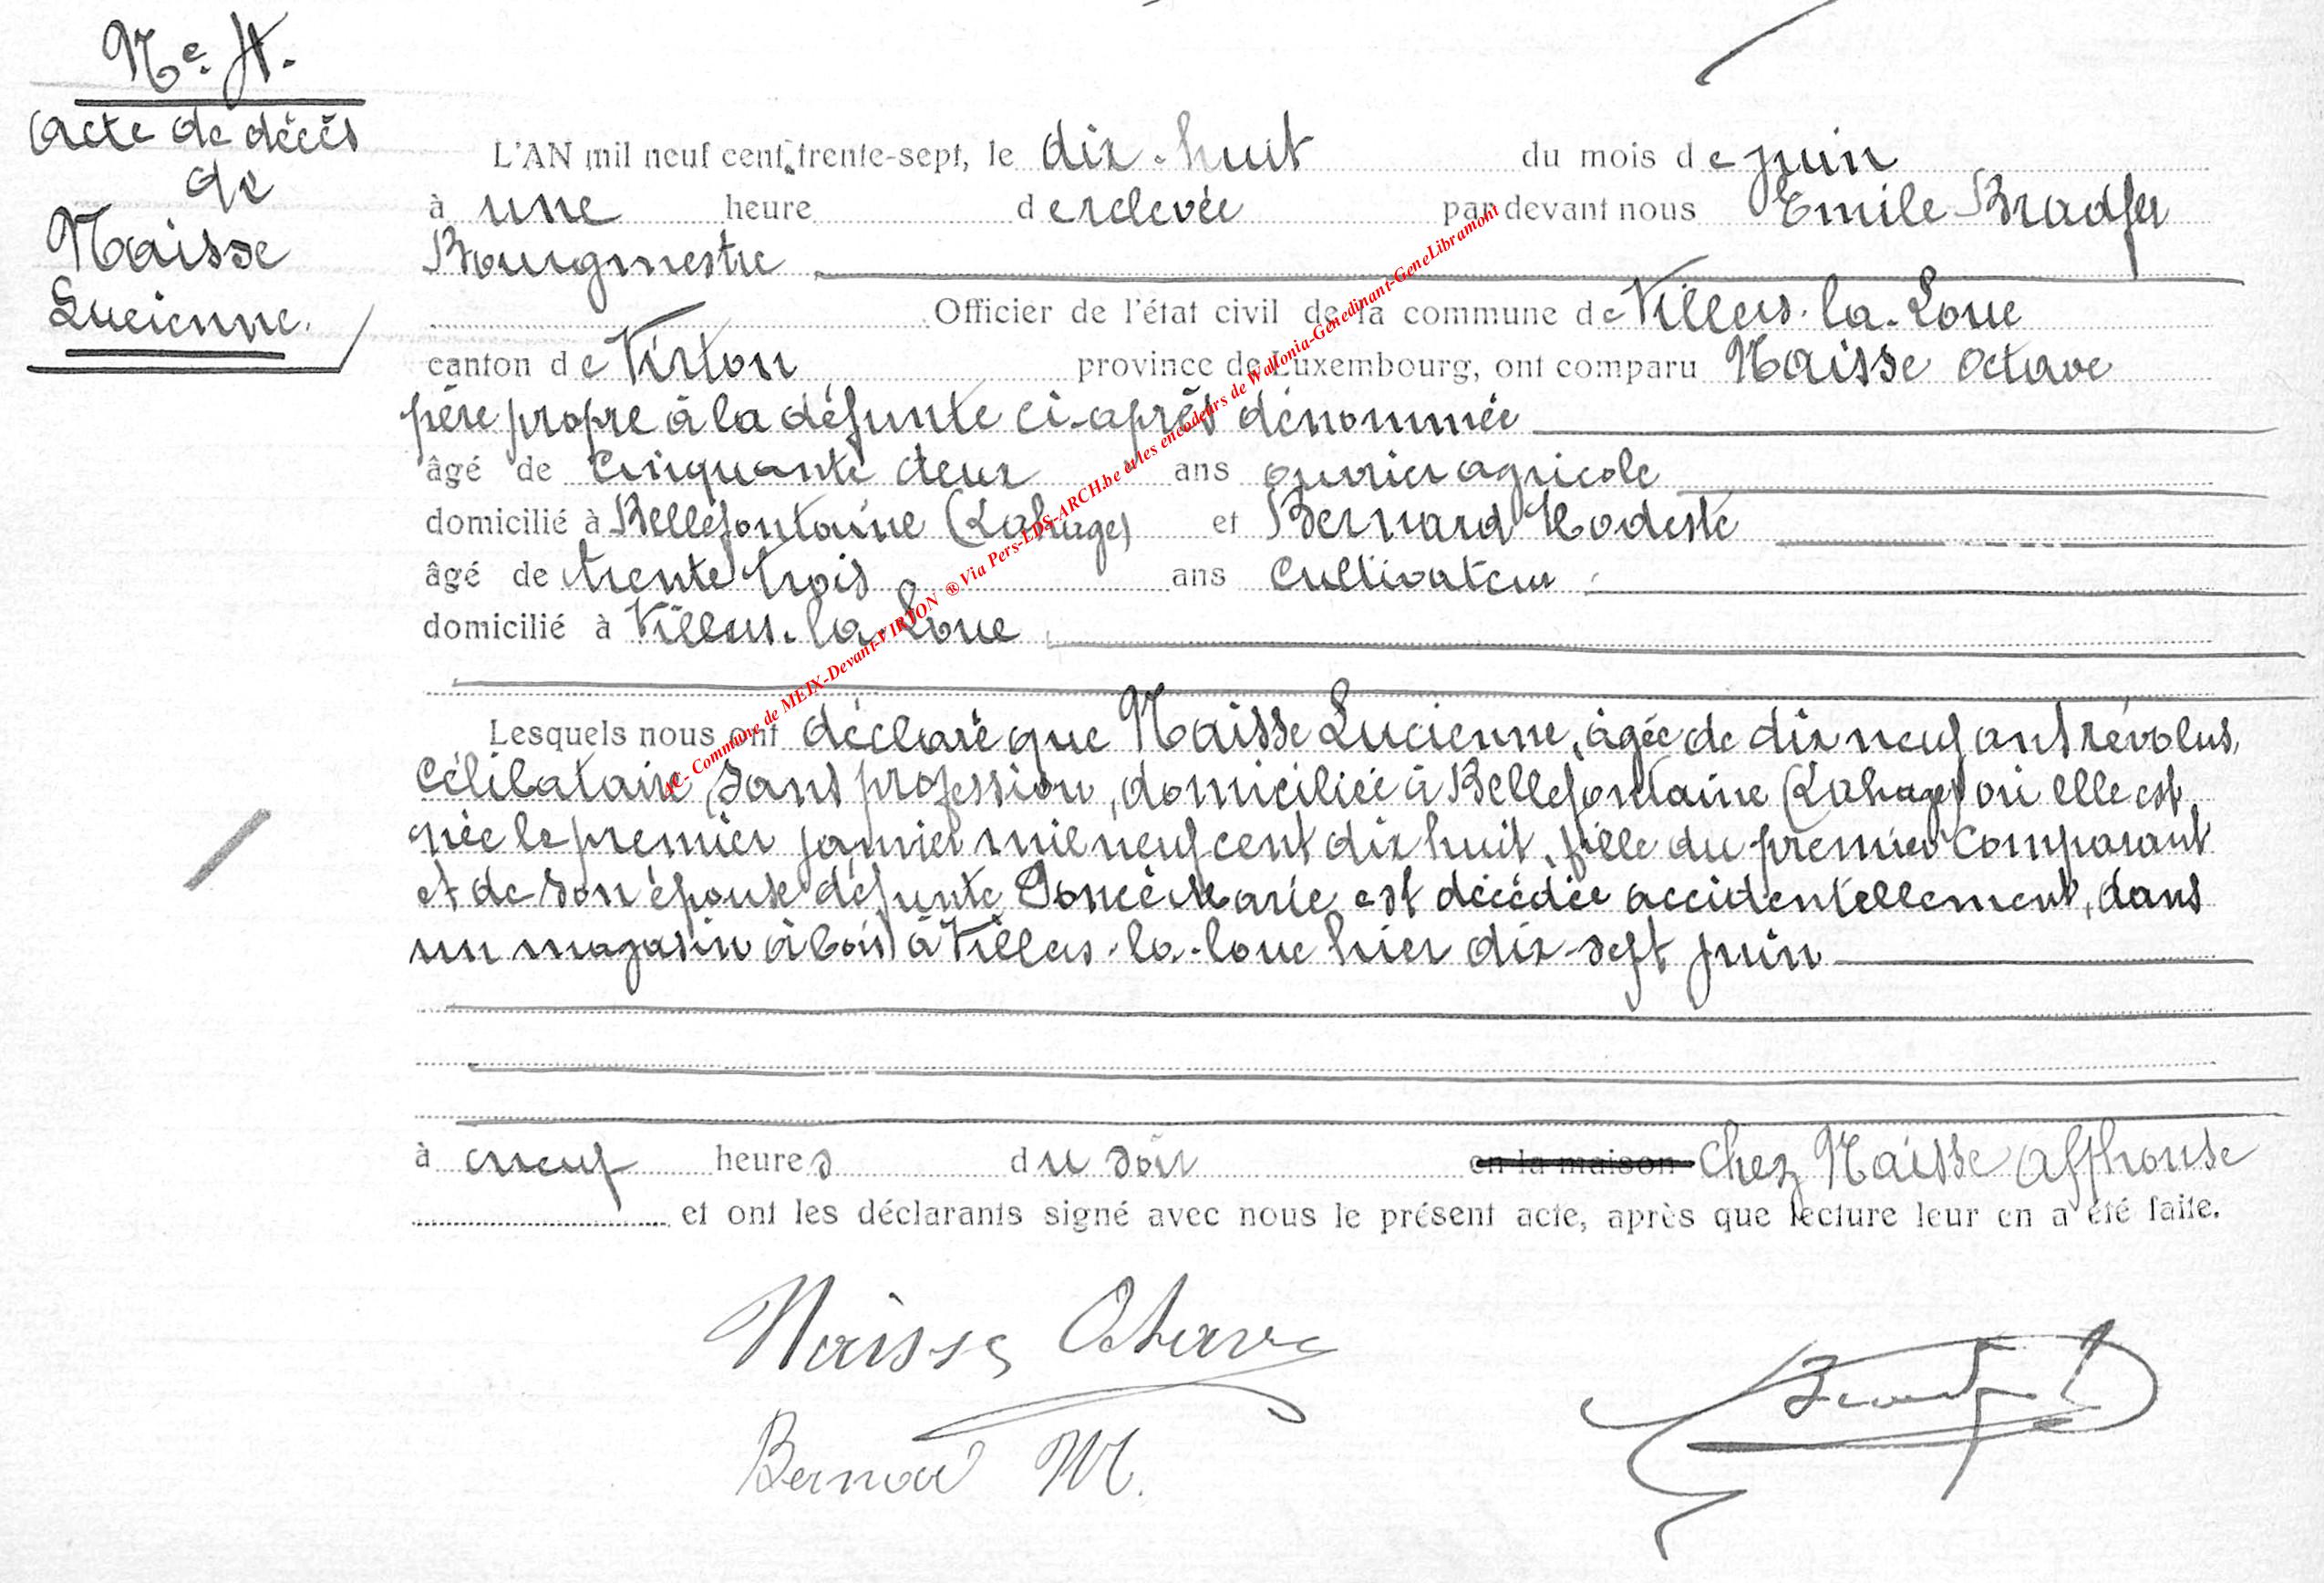 Nº 4.
Acte de décès
de
Naisse
Lucienne.
L'AN mil neuf cent trente-sept, le dix-huit du mois de juin
à une heure de relevée par devant nous Emile Bradfer
Bourgmestre
Officier de l'état civil de la commune de Villers-la-Loue
canton de Virton province de Luxembourg, ont comparu Naisse Octave
père propre à la défunte ci-après dénommée
âgé de cinquante deux ans ouvrier agricole
domicilié à Bellefontaine (Lahage) et Bernard Modeste
âgé de trente trois ans cultivateur
domicilié à Villers-la-Loue
Lesquels nous ont déclaré que Naisse Lucienne, âgée de dix neuf ans révolus,
célibataire, sans profession, domiciliée à Bellefontaine (Lahage) où elle est
née le premier janvier mil neuf cent dix huit, fille du premier comparant
et de son épouse défunte Poncé Marie est décédée accidentellement, dans
un magasin à bois à Villers-la-loue hier dix-sept juin
à neuf heures du soir en la maison chez Naisse Alphonse
et ont les déclarants signé avec nous le présent acte, après que lecture leur en a été faite.
Naisse Octave
Bernard M.
Bradfer
AC- Commune de MEIX-Devant-VIRTON ® Via Pers-EDS-ARCH.be et les encodeurs de Wallonia-Genedinant-GeneLibramont